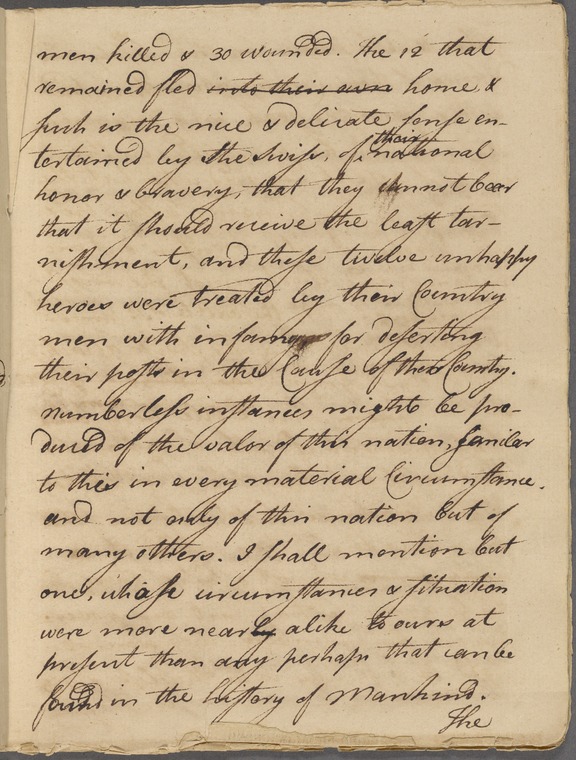 men killed & 30 wounded. The 12 that
remained fled into their own home &
such is the nice & delicate sense en-
tertained by the Swiss, of their national
honor & bravery, that they cannot bear
that it should receive the least tar-
nishment, and these twelve unhappy
heroes were treated by their Country
men with infamy for deserting
their posts in the Cause of their Country.
numberless instances might be pro-
duced of the valor of this nation, similar
to this in every material Circumstance.
and not only of this nation but of
many others. I shall mention but
one, whose circumstances & situation
were more nearly alike to ours at
present than any perhaps that can be
found in the history of Mankind.
The